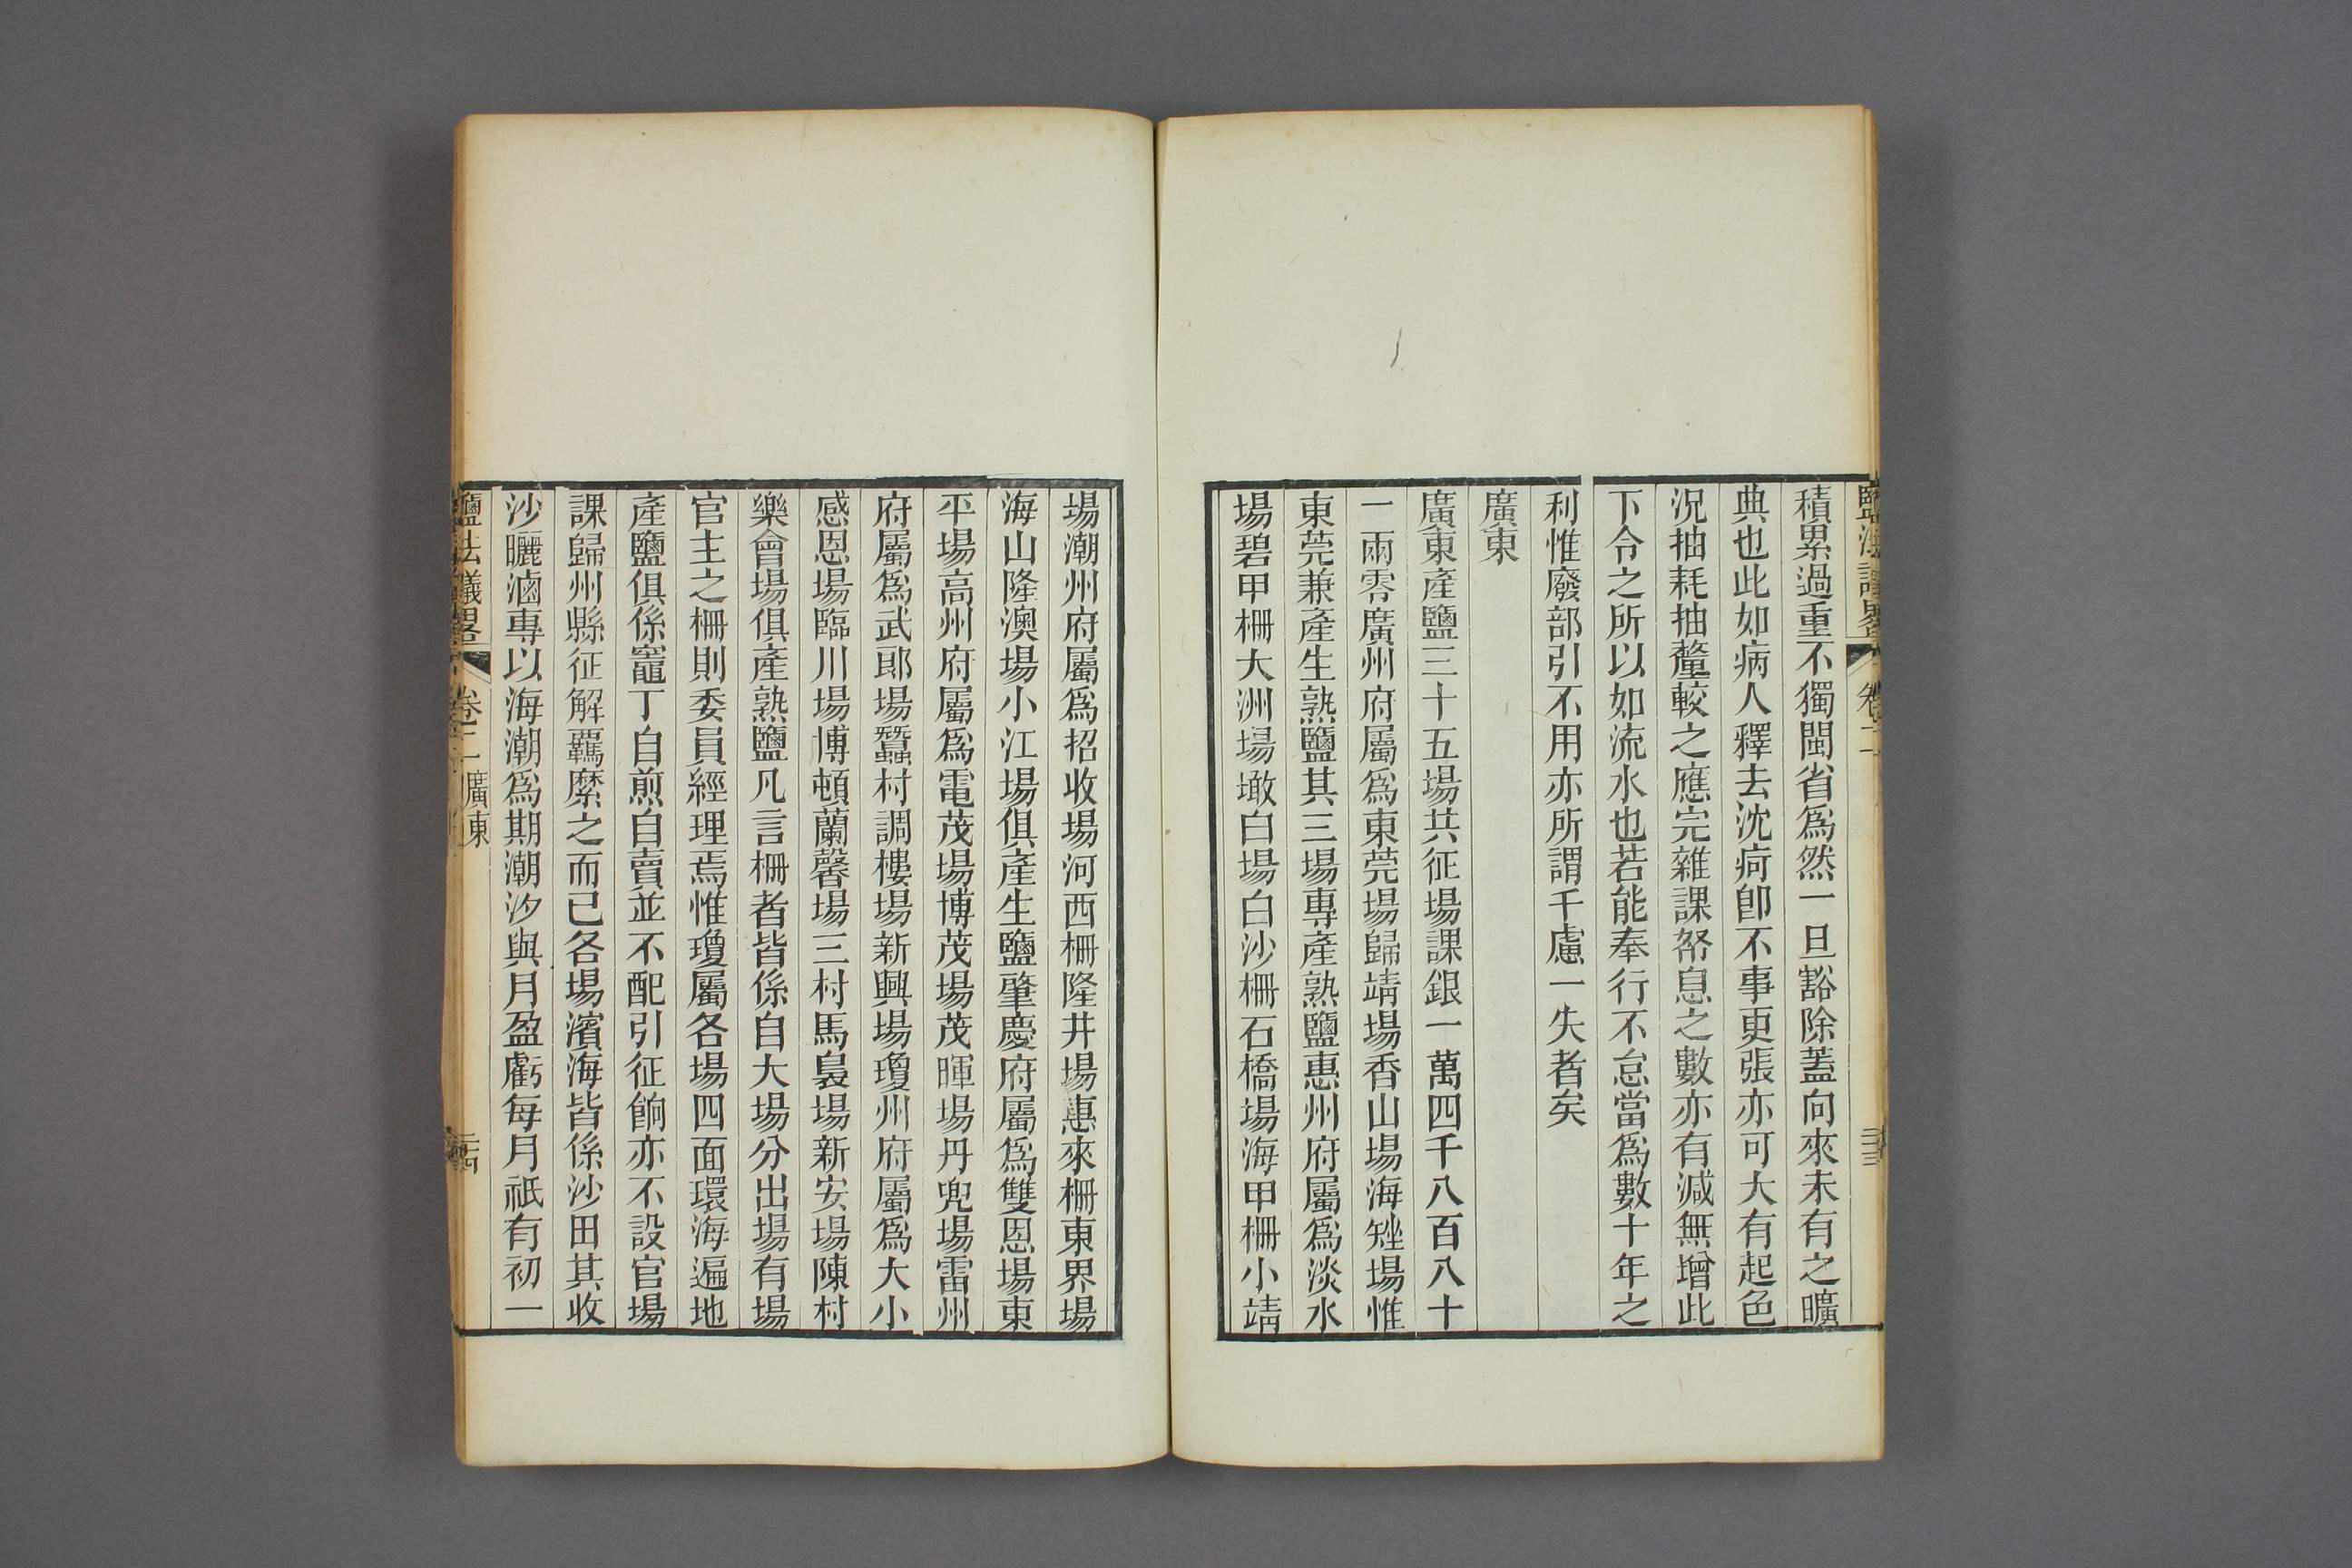 鹽法議畧
卷二
積累過重不獨閩省爲然一旦豁除蓋向來未有之曠
典也此如病人釋去沈疴卽不事更張亦可大有起色
況抽耗抽釐較之應完雜課帑息之數亦有減無增此
下令之所以如流水也若能奉行不怠當爲數十年之
利惟廢部引不用亦所謂千慮一失者矣
廣東
廣東產鹽三十五場共征場課銀一萬四千八百八十
一兩零廣州府屬爲東莞場歸靖場香山場海矬場惟
東莞兼產生熟鹽其三場專產熟鹽惠州府屬爲淡水
場碧甲柵大洲場墩白場白沙柵石橋場海甲柵小靖
場潮州府屬爲招收場河西柵隆井場惠來柵東界場
海山隆澳場小江場俱產生鹽肇慶府屬爲雙恩場東
平場高州府屬爲電茂場博茂場茂暉場丹兜場雷州
府屬爲武郎場蠶村調樓場新興場瓊州府屬爲大小
感恩場臨川場博頓蘭馨場三村馬裊場新安場陳村
樂會場俱產熟鹽凡言柵者皆係自大場分出場有場
官主之柵則委員經理焉惟瓊屬各場四面環海遍地
產鹽俱係竈丁自煎自賣並不配引征餉亦不設官場
課歸州縣征解羈縻之而已各場濱海皆係沙田其收
沙曬滷專以海潮爲期潮汐與月盈虧每月祇有初一
鹽法議畧
卷二 廣東